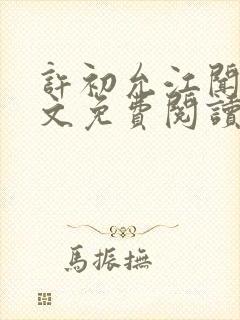 許初允江聞
文免費閱讀
馬振撫